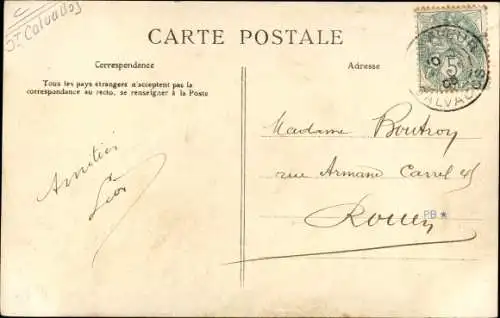 St Calvados
CARTE POSTALE
Correspondence
Adresse
Tous les pays étrangers n'acceptent pas la
correspondance au recto, se renseigner à la Poste
5
CALVADOS
Amitiés
Léon
Madame Boutroy
rue Armand Carrel 45
Rouen
PB